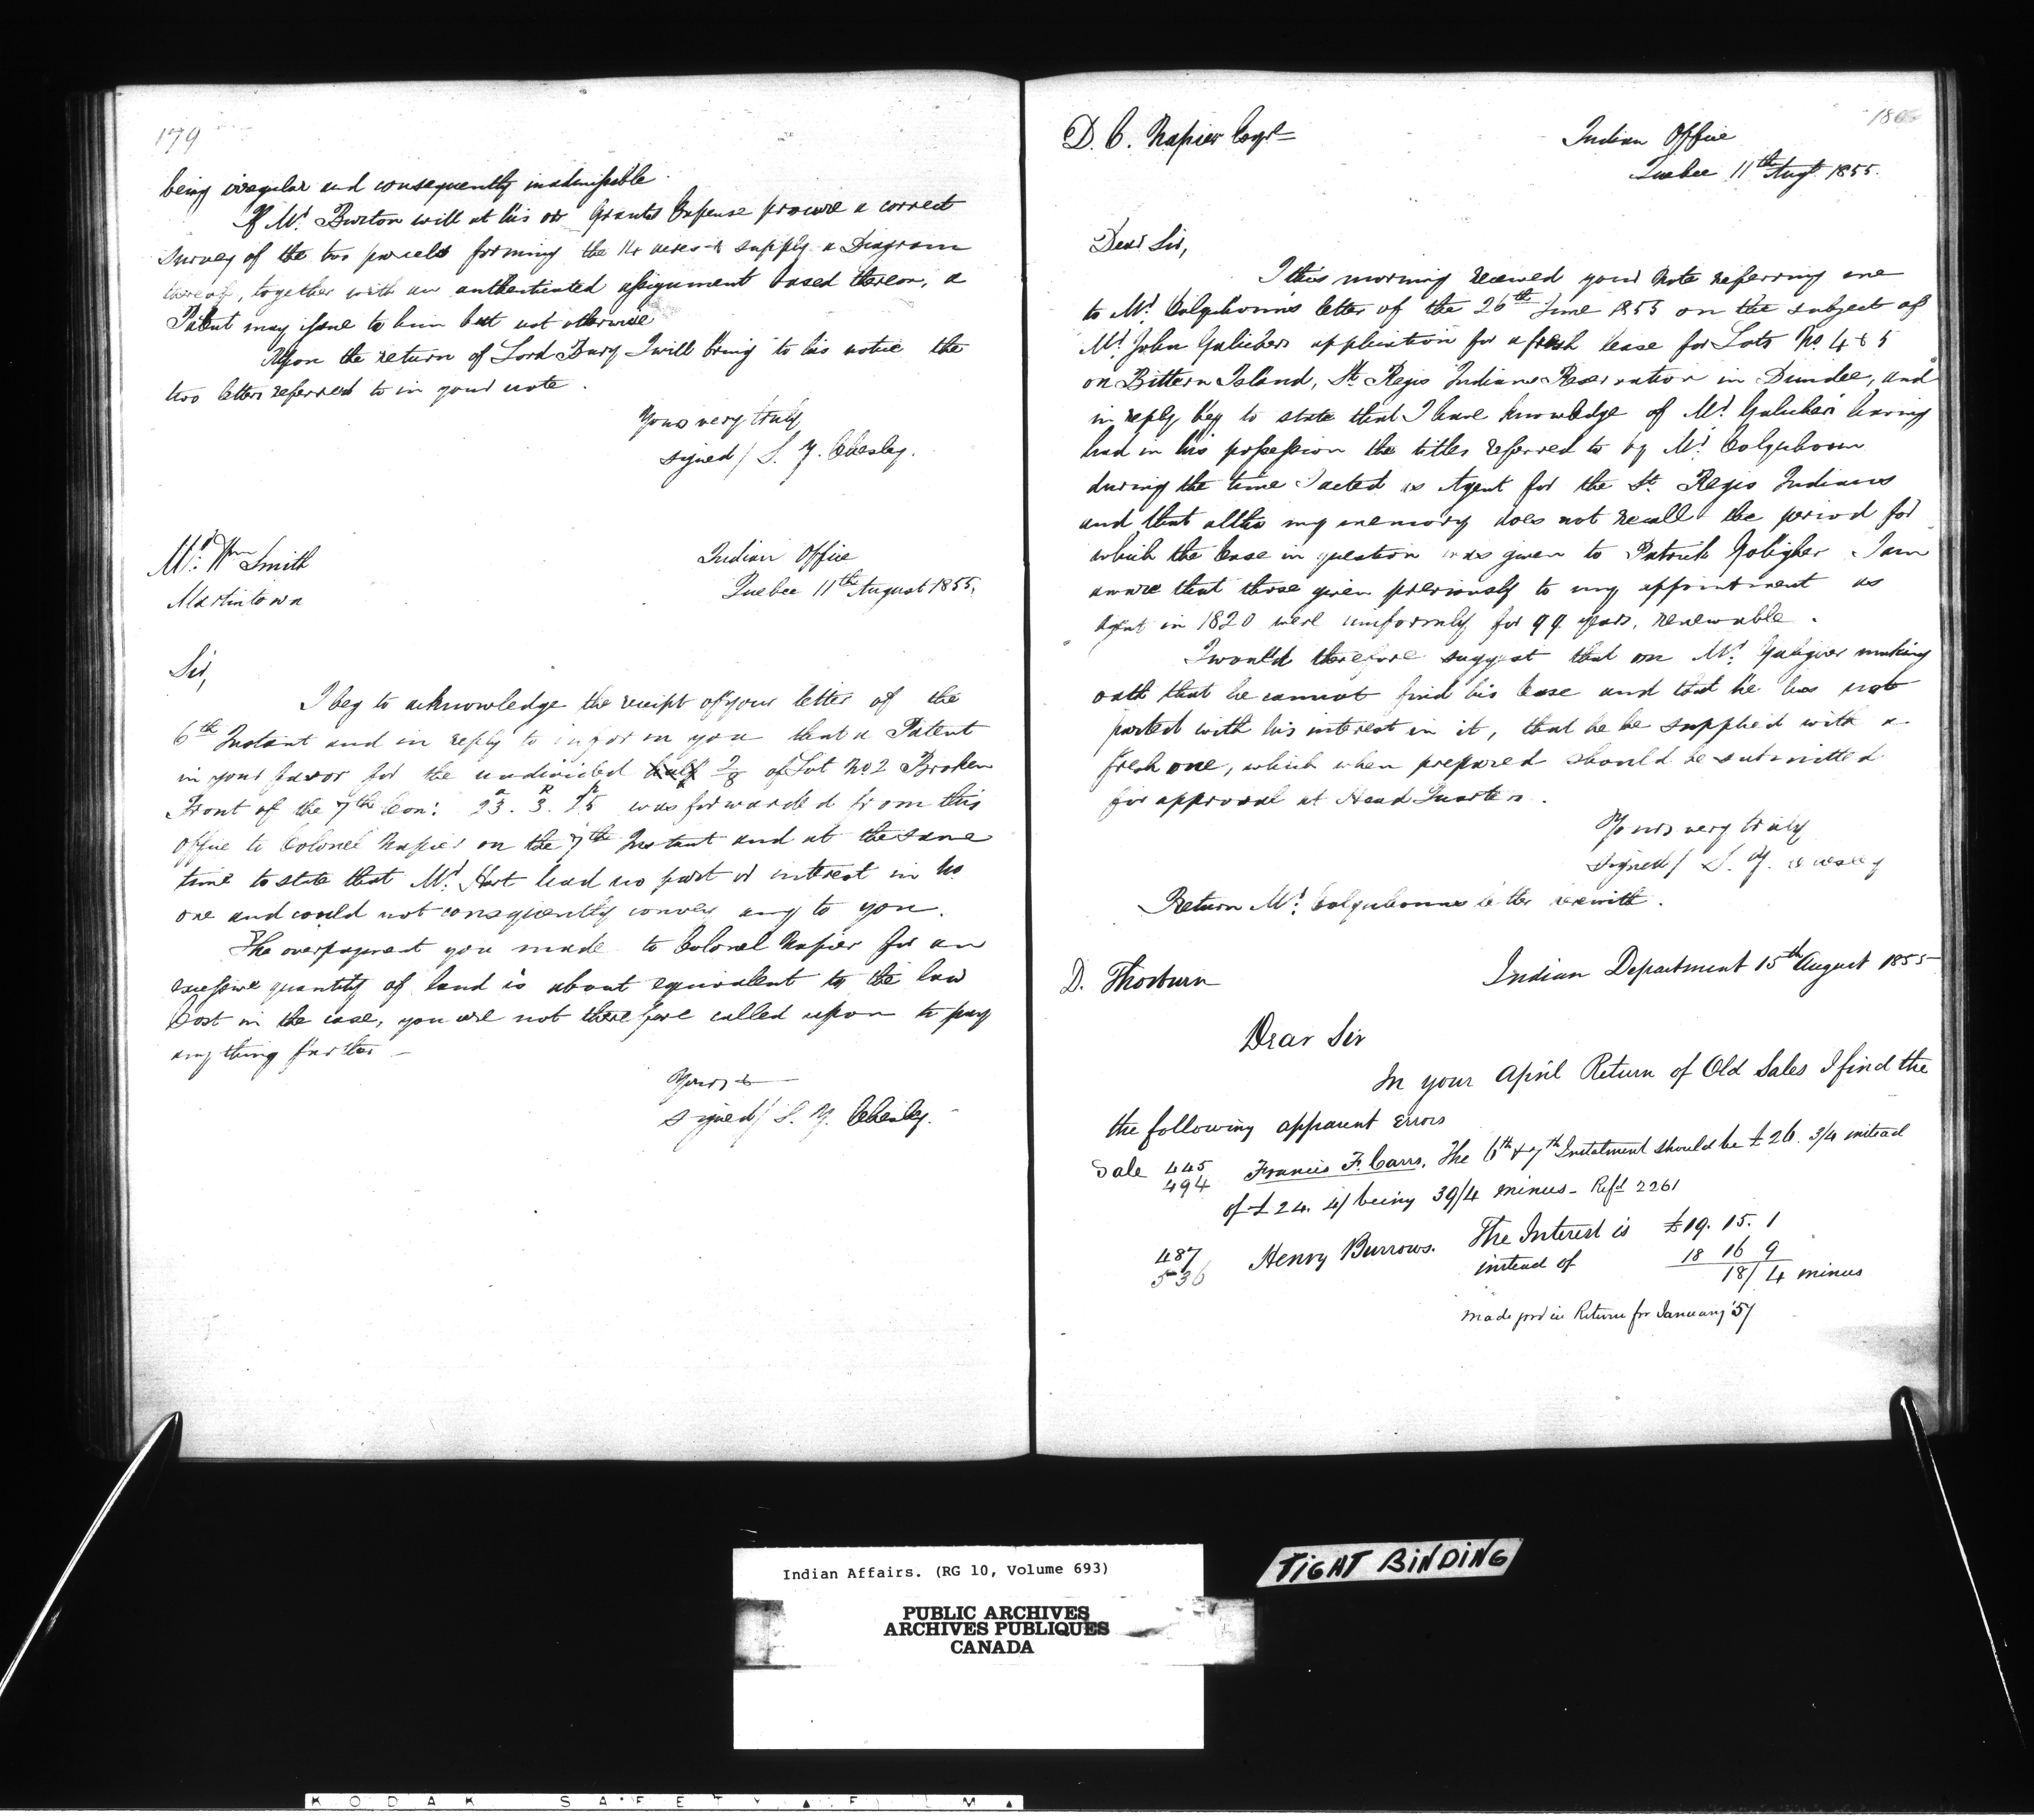 179
being iregular and consequently inadmissible.
If Mr. Burton will at his or Grants Expense procure a correct
survey of the two parcels forming the 14 acres & supply a Diagram
thereof, together with an authenticated assignment based thereon, a
Patent may issue to him but not otherwise
Upon the return of Lord Bury I will bring to his notice the
two letters referred to in your note.
Yours very truly
signed / S. Y. Chesley.
Mr. Wm Smith
Martintown
Indian Office
Quebec 11th August 1855.
Sir,
I beg to acknowledge the receipt of your letter of the
6th Instant and in reply to inform you that a Patent
in your favor for the undivided half 2/8 of Lot No 2 Broken
Front of the 7th Con: 23. 3. 15 was forwarded from this
office to Colonel Napier on the 7th Instant and at the same
time to state that Mr. Hart had no part or interest in No
one and could not consequently convey any to you.
The overpayment you made to Colonel Napier for an
excessive quantity of land is about equivalent to the law
Cost in the case, you are not therefore called upon to pay
any thing further
Yours &
signed / S. Y. Chesley.
180
D. C. Napier Esqre
Indian Office
Quebec 11th Augt 1855.
Dear Sir,
I this morning received your note referring me
to Mr. Colquhoun's letter of the 26th June 1855 on the subject of
Mr. John Galichers application for a fresh lease for Lots No. 4 & 5
on Bittern Island, St. Regis Indians Reservation in Dundee, and
in reply beg to state that I have knowledge of Mr. Galicher having
had in his possession the titles referred to by Mr. Colquhoun
during the time I acted as Agent for the St. Regis Indians
and that altho my memory does not recall the period for
which the lease in question was given to Patrick Goligher I am
aware that those given previously to my appointment as
Agent in 1820 were uniformly for 99 years, renewable.
I would therefore suggest that on Mr. Galigher making
oath that he cannot find his lease and that he has not
parted with his interest in it, that he be supplied with a
fresh one, which when prepared should be submitted
for approval at Head Quarters.
Yours very truly
signed / S. Y. Chesley
Return Mr. Colquhouns letter herewith.
D. Thorburn
Indian Department 15th August 1855
Dear Sir
In your April Return of Old Sales I find the
the following apparent errors
Sale 445 Francis F. Carrs. The 6th & 7th Instalment should be £26. 3/4 instead
494 of £24. 4/ being 39/4 minus - Refd 2261
487 Henry Burrows. The Interest is £19. 15. 1
536 instead of 18 16 9
18/ 4 minus
made good in Return for January '57
Indian Affairs. (RG 10, Volume 693)
PUBLIC ARCHIVES
ARCHIVES PUBLIQUES
CANADA
TIGHT BINDING
KODAK SAFETY FILM